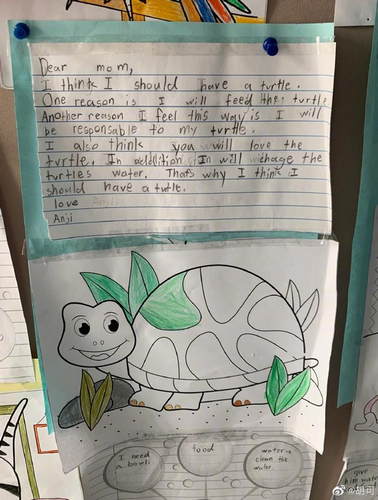 Dear mom,
I think I should have a turtle.
One reason is I will feed the turtle
Another reason I feel this way is I will
be responsable to my turtle.
I also think you will love the
turtle. In addition In will chage the
turtles water. Thats why I think I
should have a turtle.
love Anji
Anji
I need
a bowl
food
water
clean the
water
give
him wate
@胡可